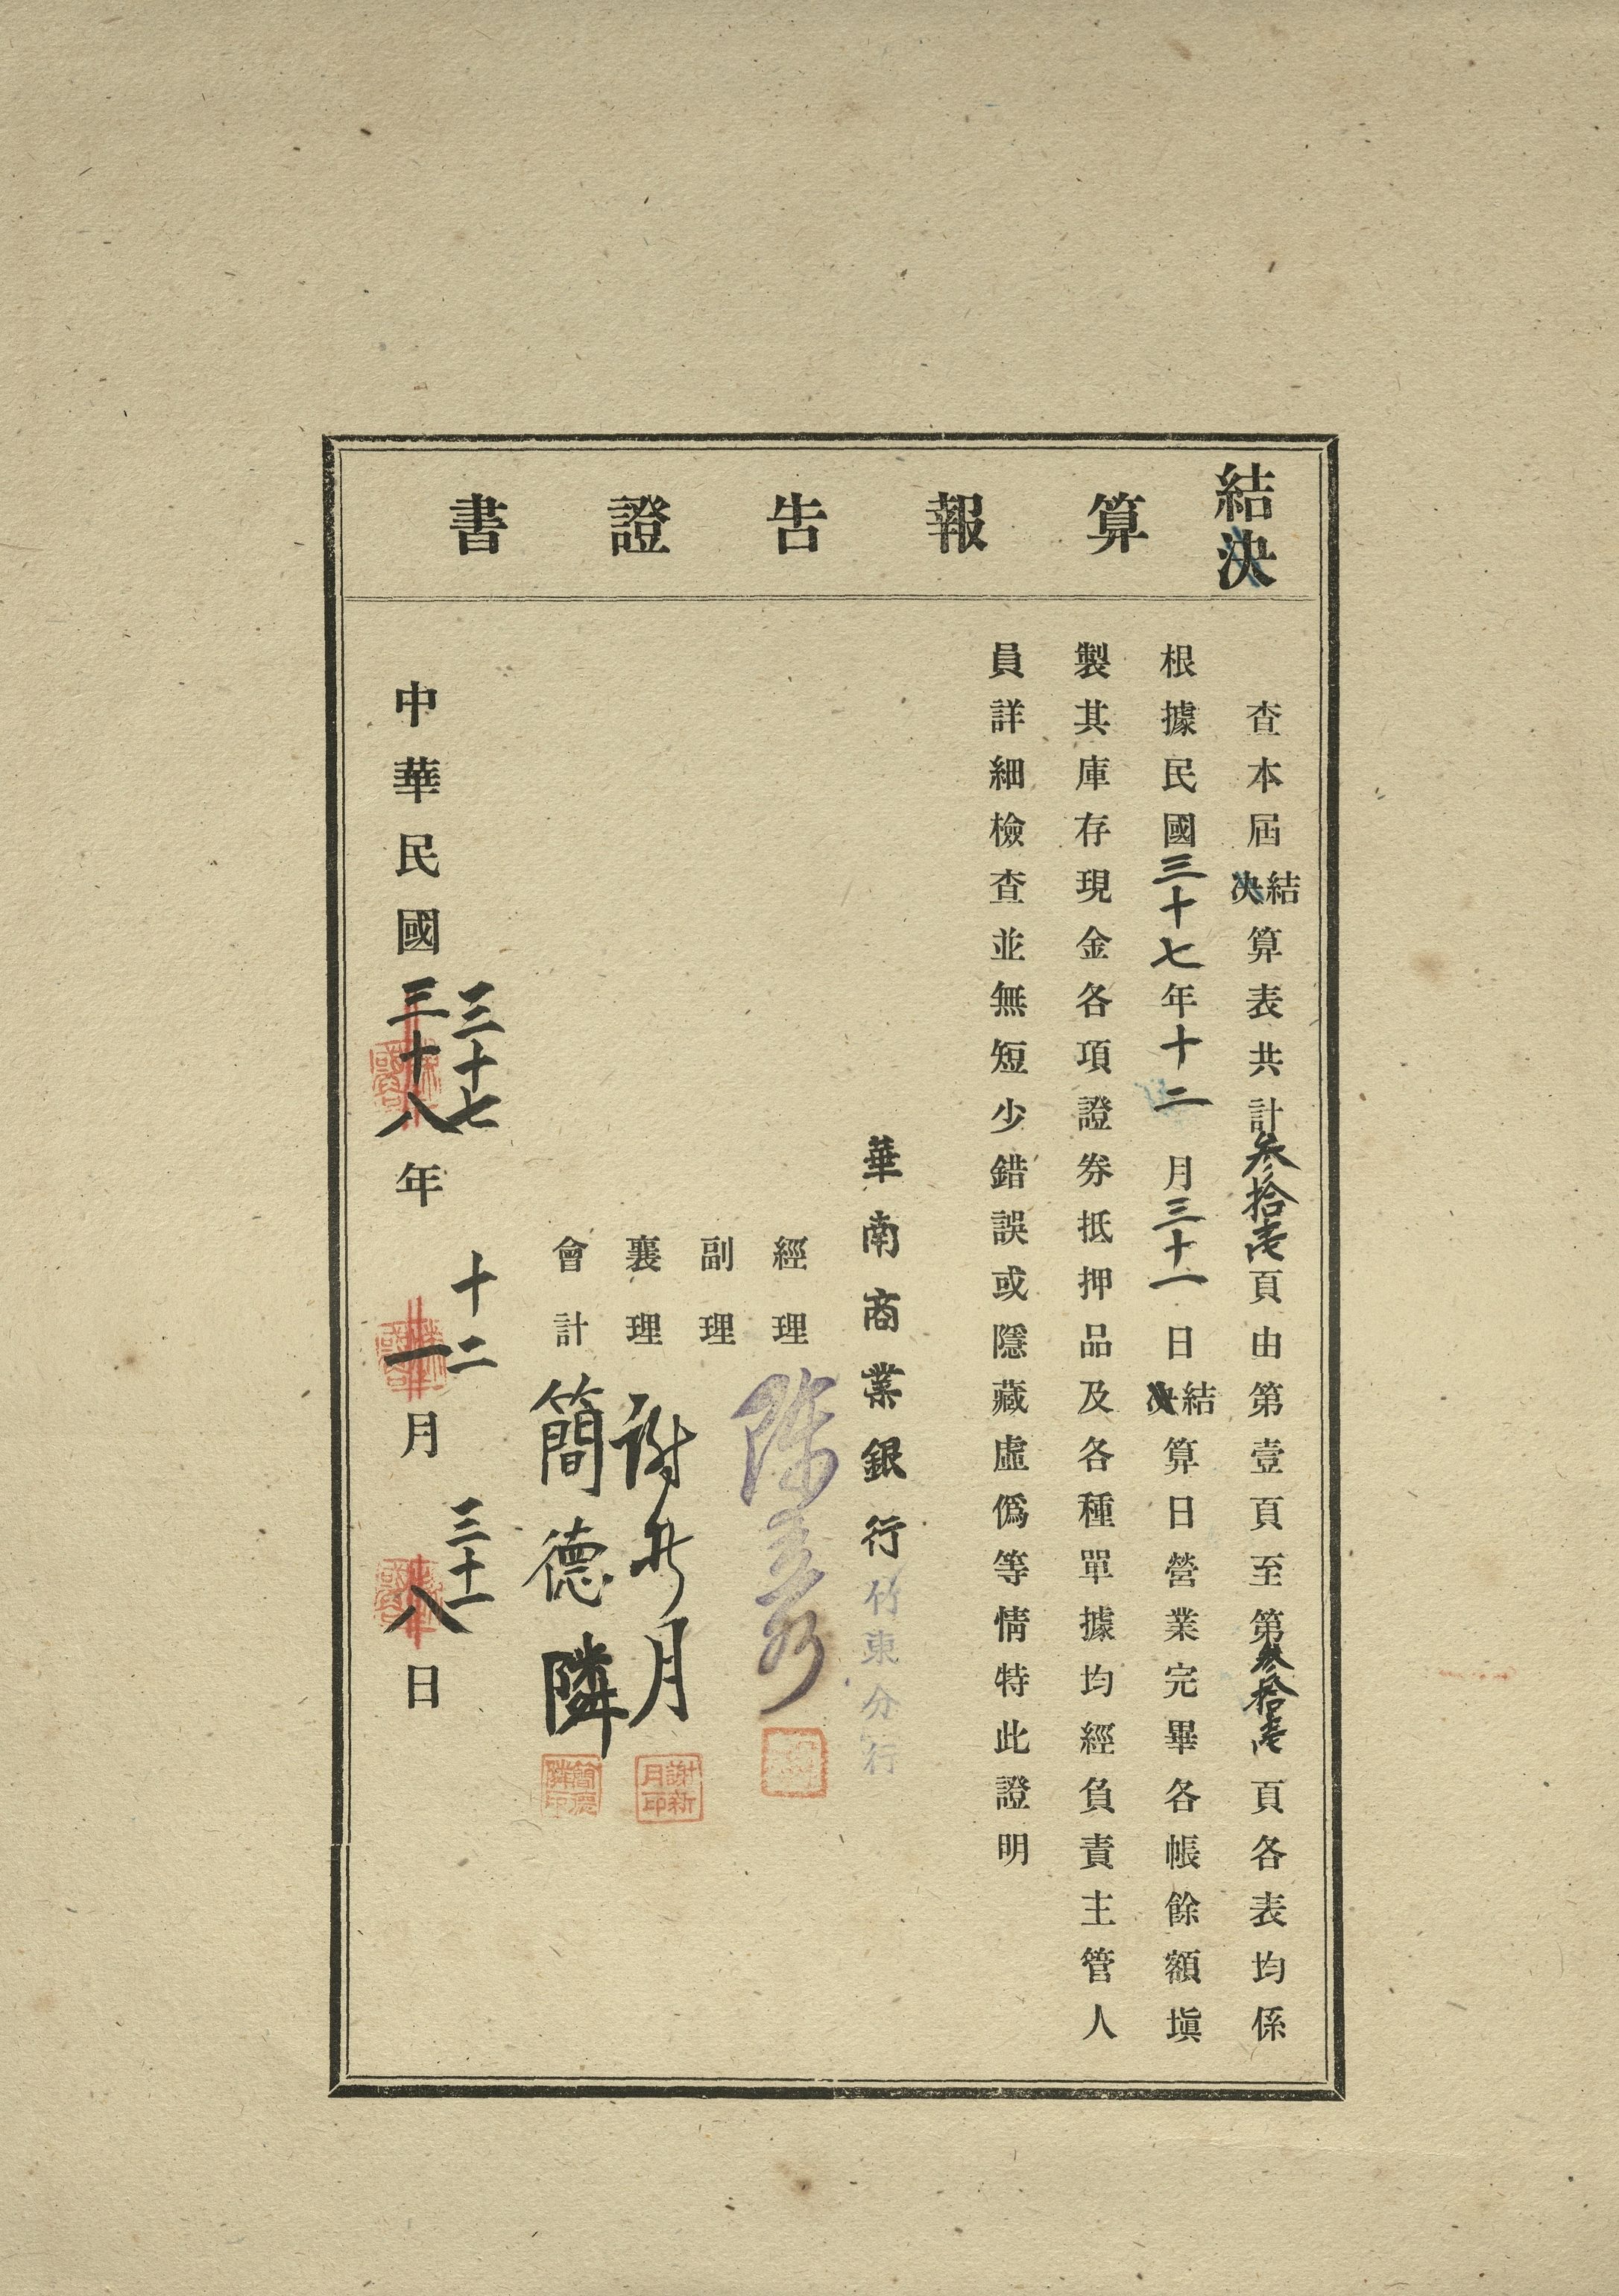 結決算報告證書
查本屆結決算表共計叁拾壱頁由第壹頁至第叁拾壱頁各表均係
根據民國三十七年十二月三十一日結決算日營業完畢各帳餘額塡
製其庫存現金各項證券抵押品及各種單據均經負責主管人
員詳細檢查並無短少錯誤或隱藏虛僞等情特此證明
華南商業銀行竹東分行
經理 陳
副理
襄理 謝新月
謝新月印
會計 簡德隣
簡德隣印
三十七 十二 三十一
中華民國三十八年一月八日